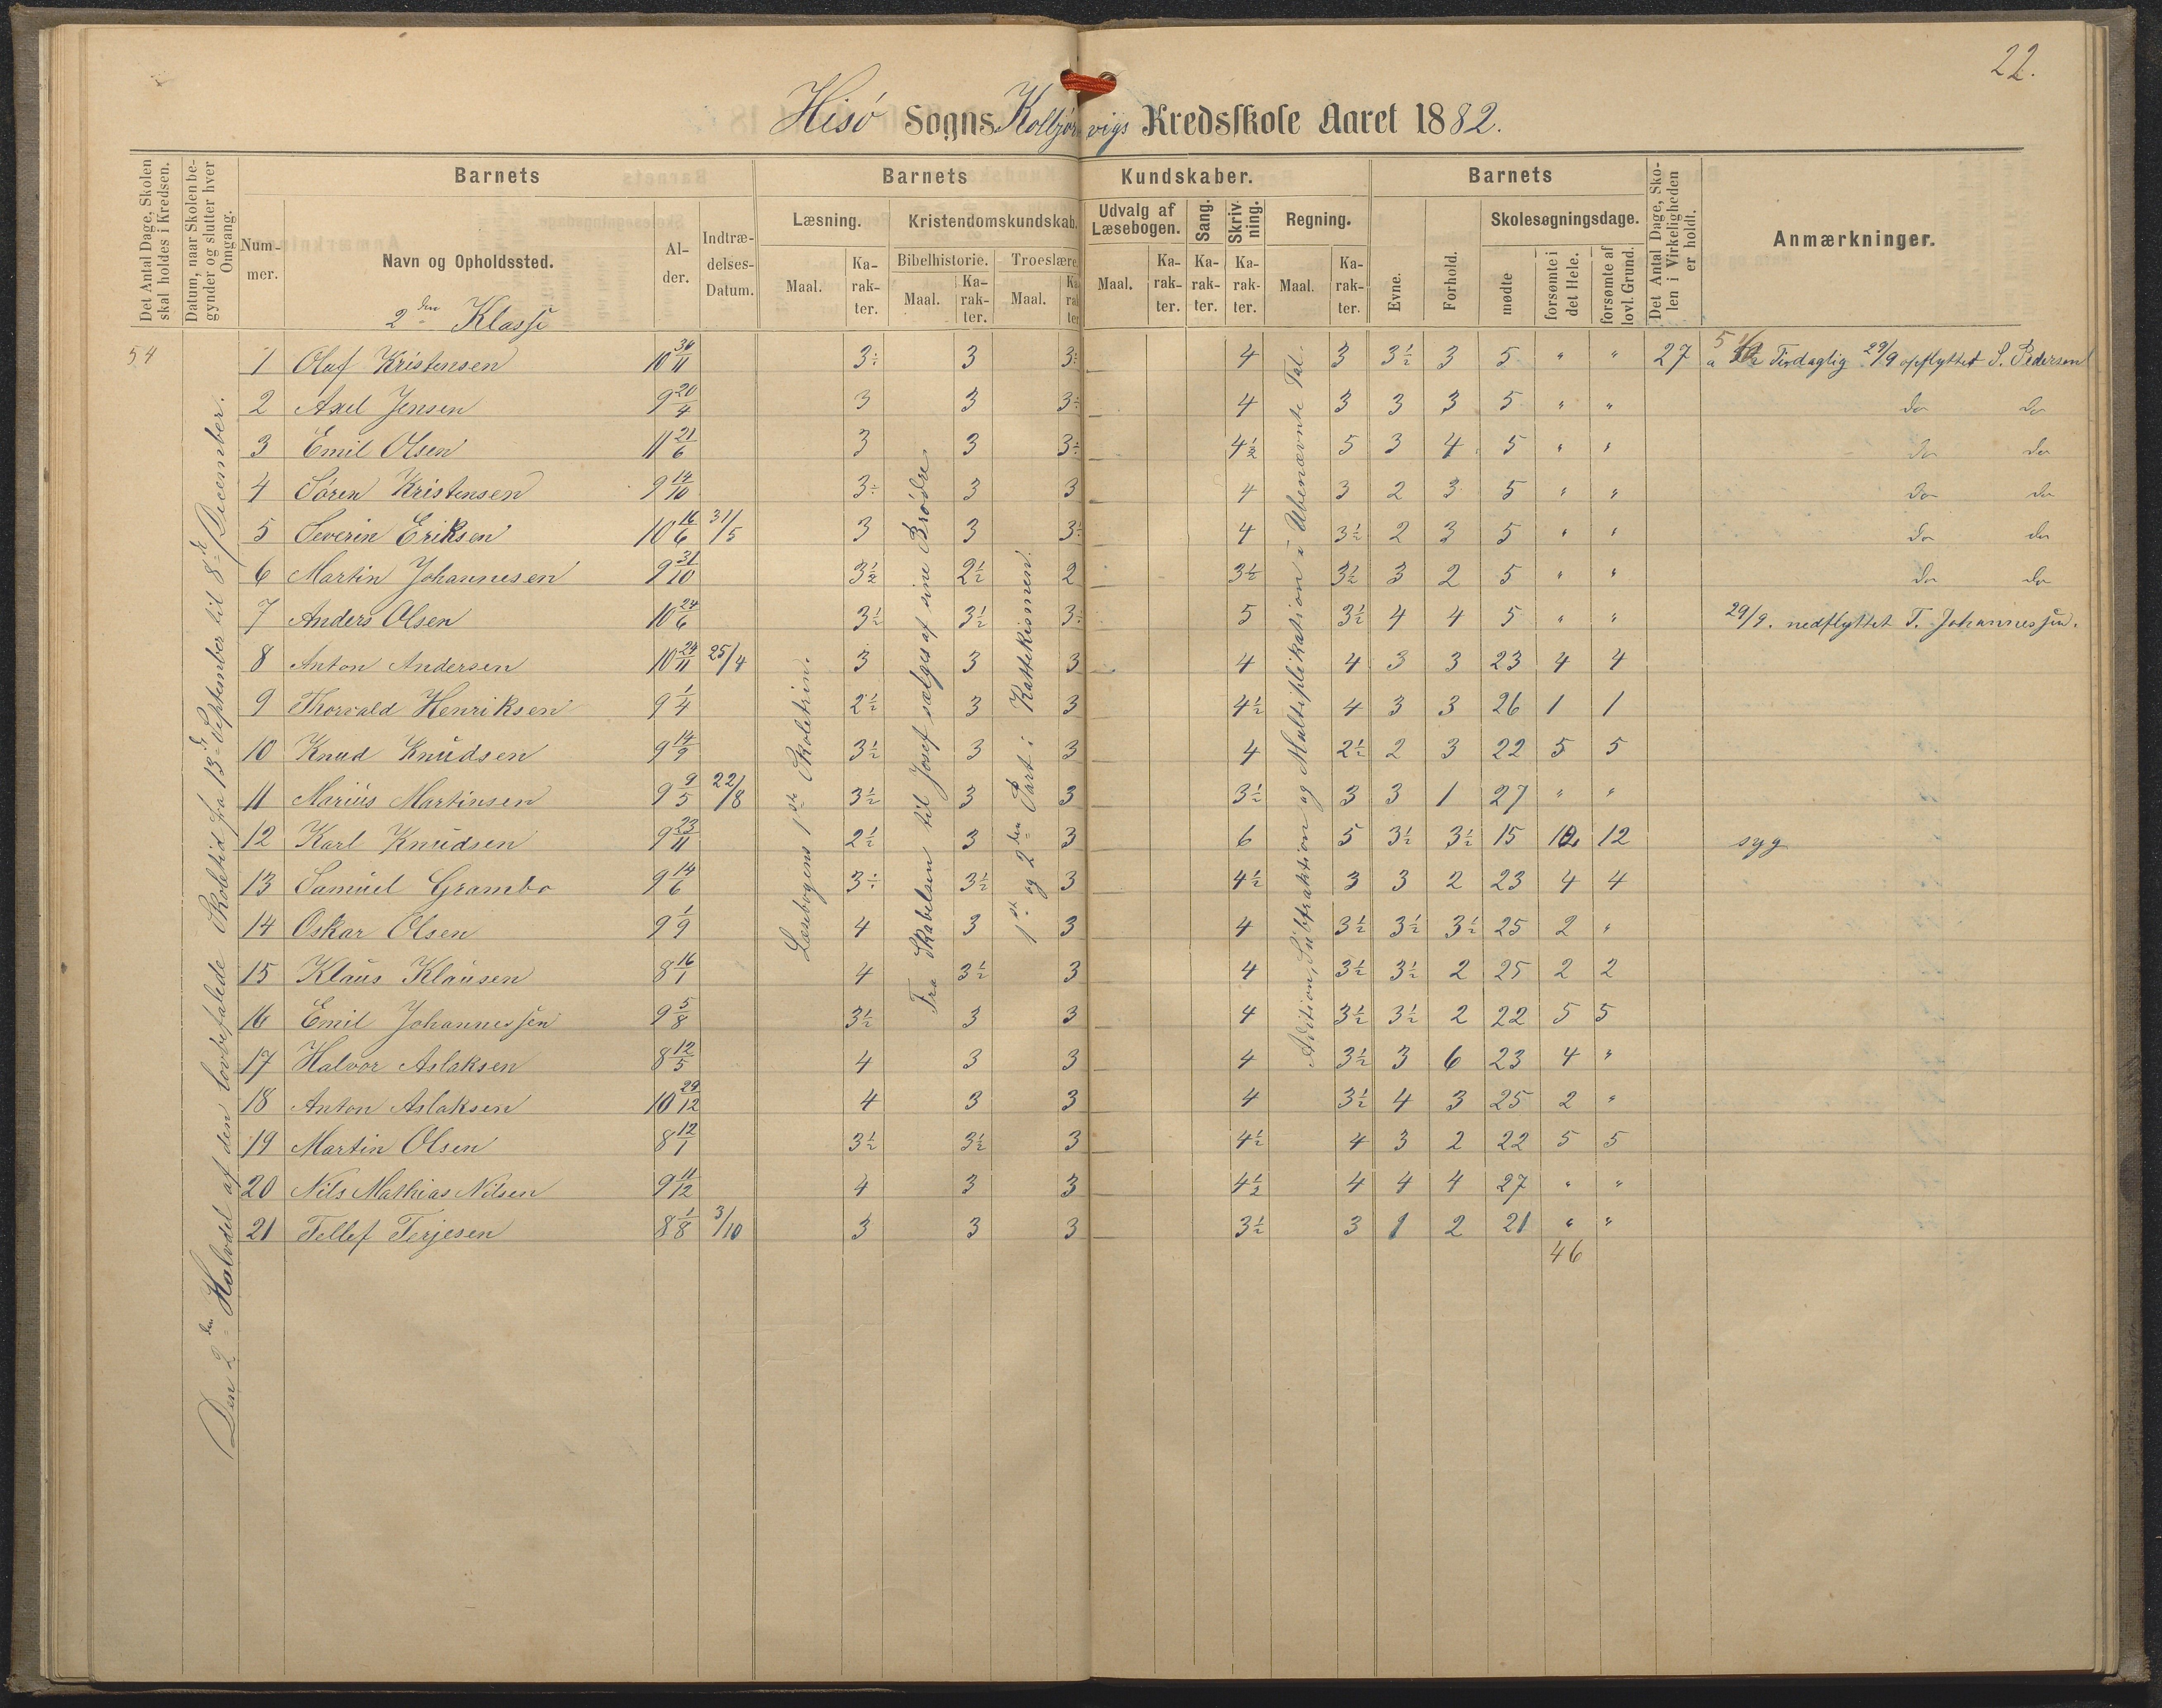 22.
Hisö Sogns Kolbjørnvigs Kredsskole Aaret 1882.
Det Antal Dage, Skolen skal holdes i Kredsen.
Datum, naar Skolen begynder og slutter hver Omgang.
Barnets
Barnets Kundskaber.
Barnets
Det Antal Dage, Skolen i Virkeligheden er holdt.
Anmærkninger.
Nummer. Navn og Opholdssted. Alder. Indtrædelses-Datum.
Læsning. Kristendomskundskab. Udvalg af Læsebogen. Sang. Skrivning. Regning. Evne. Forhold. Skolesøgningsdage.
Bibelhistorie. Troeslære.
Maal. Karakter. Maal. Karakter. Maal. Karakter. Maal. Karakter. Karakter. Karakter. Maal. Karakter. mødte forsømte i det Hele. forsømte af lovl. Grund.
2den Klasse
54
Den 2den Halvdel af den lovbefalede Skoletid fra 13de September til 8de December.
Læsebogens 1ste Skoletrin.
Fra Skabelsen til Josef sælges af sine Brødre.
1ste og 2den Part i Kattekismen.
Adition, Subtraktion og Multiplikation i Ubenævnte Tal.
1 Oluf Kristensen 10 30/11 3÷ 3 3÷ 4 3 3½ 3 5 " " 27 29/9 opflyttet S. Pedersen
2 Axel Jensen 9 20/4 3 3 3÷ 4 3 3 3 5 " " do do
3 Emil Olsen 11 21/6 3 3 3÷ 4½ 5 3 4 5 " " do do
4 Sören Kristensen 9 14/10 3÷ 3 3 4 3 2 3 5 " " do do
5 Severin Eriksen 10 16/6 31/5 3 3 3÷ 4 3½ 2 3 5 " " do do
6 Martin Johannesen 9 31/10 3½ 2½ 2 3½ 3½ 3 2 5 " " do do
7 Anders Olsen 10 24/6 3½ 3½ 3÷ 5 3½ 4 4 5 " " 29/9. nedflyttet T. Johannessen.
8 Anton Andersen 10 24/11 25/4 3 3 3 4 4 3 3 23 4 4
9 Thorvald Henriksen 9 1/4 2½ 3 3 4½ 4 3 3 26 1 1
10 Knud Knudsen 9 14/9 3½ 3 3 4 2½ 2 3 22 5 5
11 Marius Martinsen 9 9/5 22/8 3½ 3 3 3½ 3 3 1 27 " "
12 Karl Knudsen 9 23/11 2½ 3 3 6 5 3½ 3½ 15 12 12 syg
13 Samuel Grambo 9 14/6 3÷ 3½ 3 4½ 3 3 2 23 4 4
14 Oskar Olsen 9 1/9 4 3 3 4 3½ 3½ 3½ 25 2 "
15 Klaus Klausen 8 16/1 4 3½ 3 4 3½ 3½ 2 25 2 2
16 Emil Johannessen 9 5/8 3½ 3 3 4 3½ 3½ 2 22 5 5
17 Halvor Aslaksen 8 12/5 4 3 3 4 3½ 3 6 23 4 "
18 Anton Aslaksen 10 29/12 4 3 3 4 3½ 4 3 25 2 "
19 Martin Olsen 8 12/1 3½ 3½ 3 4½ 4 3 2 22 5 5
20 Nils Mathias Nilsen 9 11/12 4 3 3 4½ 4 4 4 27 " "
21 Tellef Terjesen 8 1/8 3/10 3 3 3 3½ 3 1 2 21 " "
46